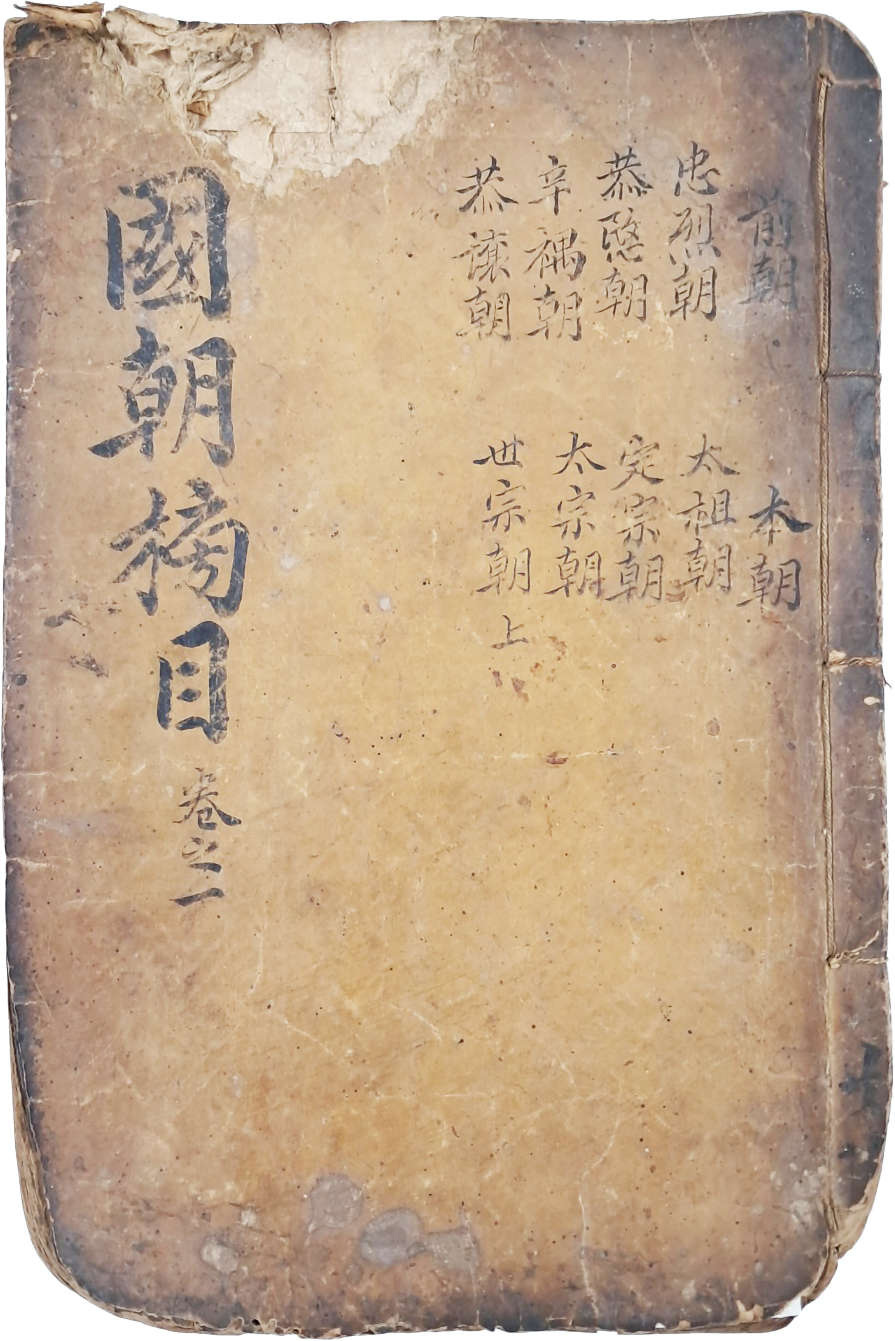 前朝
忠烈朝
恭愍朝
辛禑朝
恭讓朝
本朝
太祖朝
定宗朝
太宗朝
世宗朝上
國朝榜目卷之一